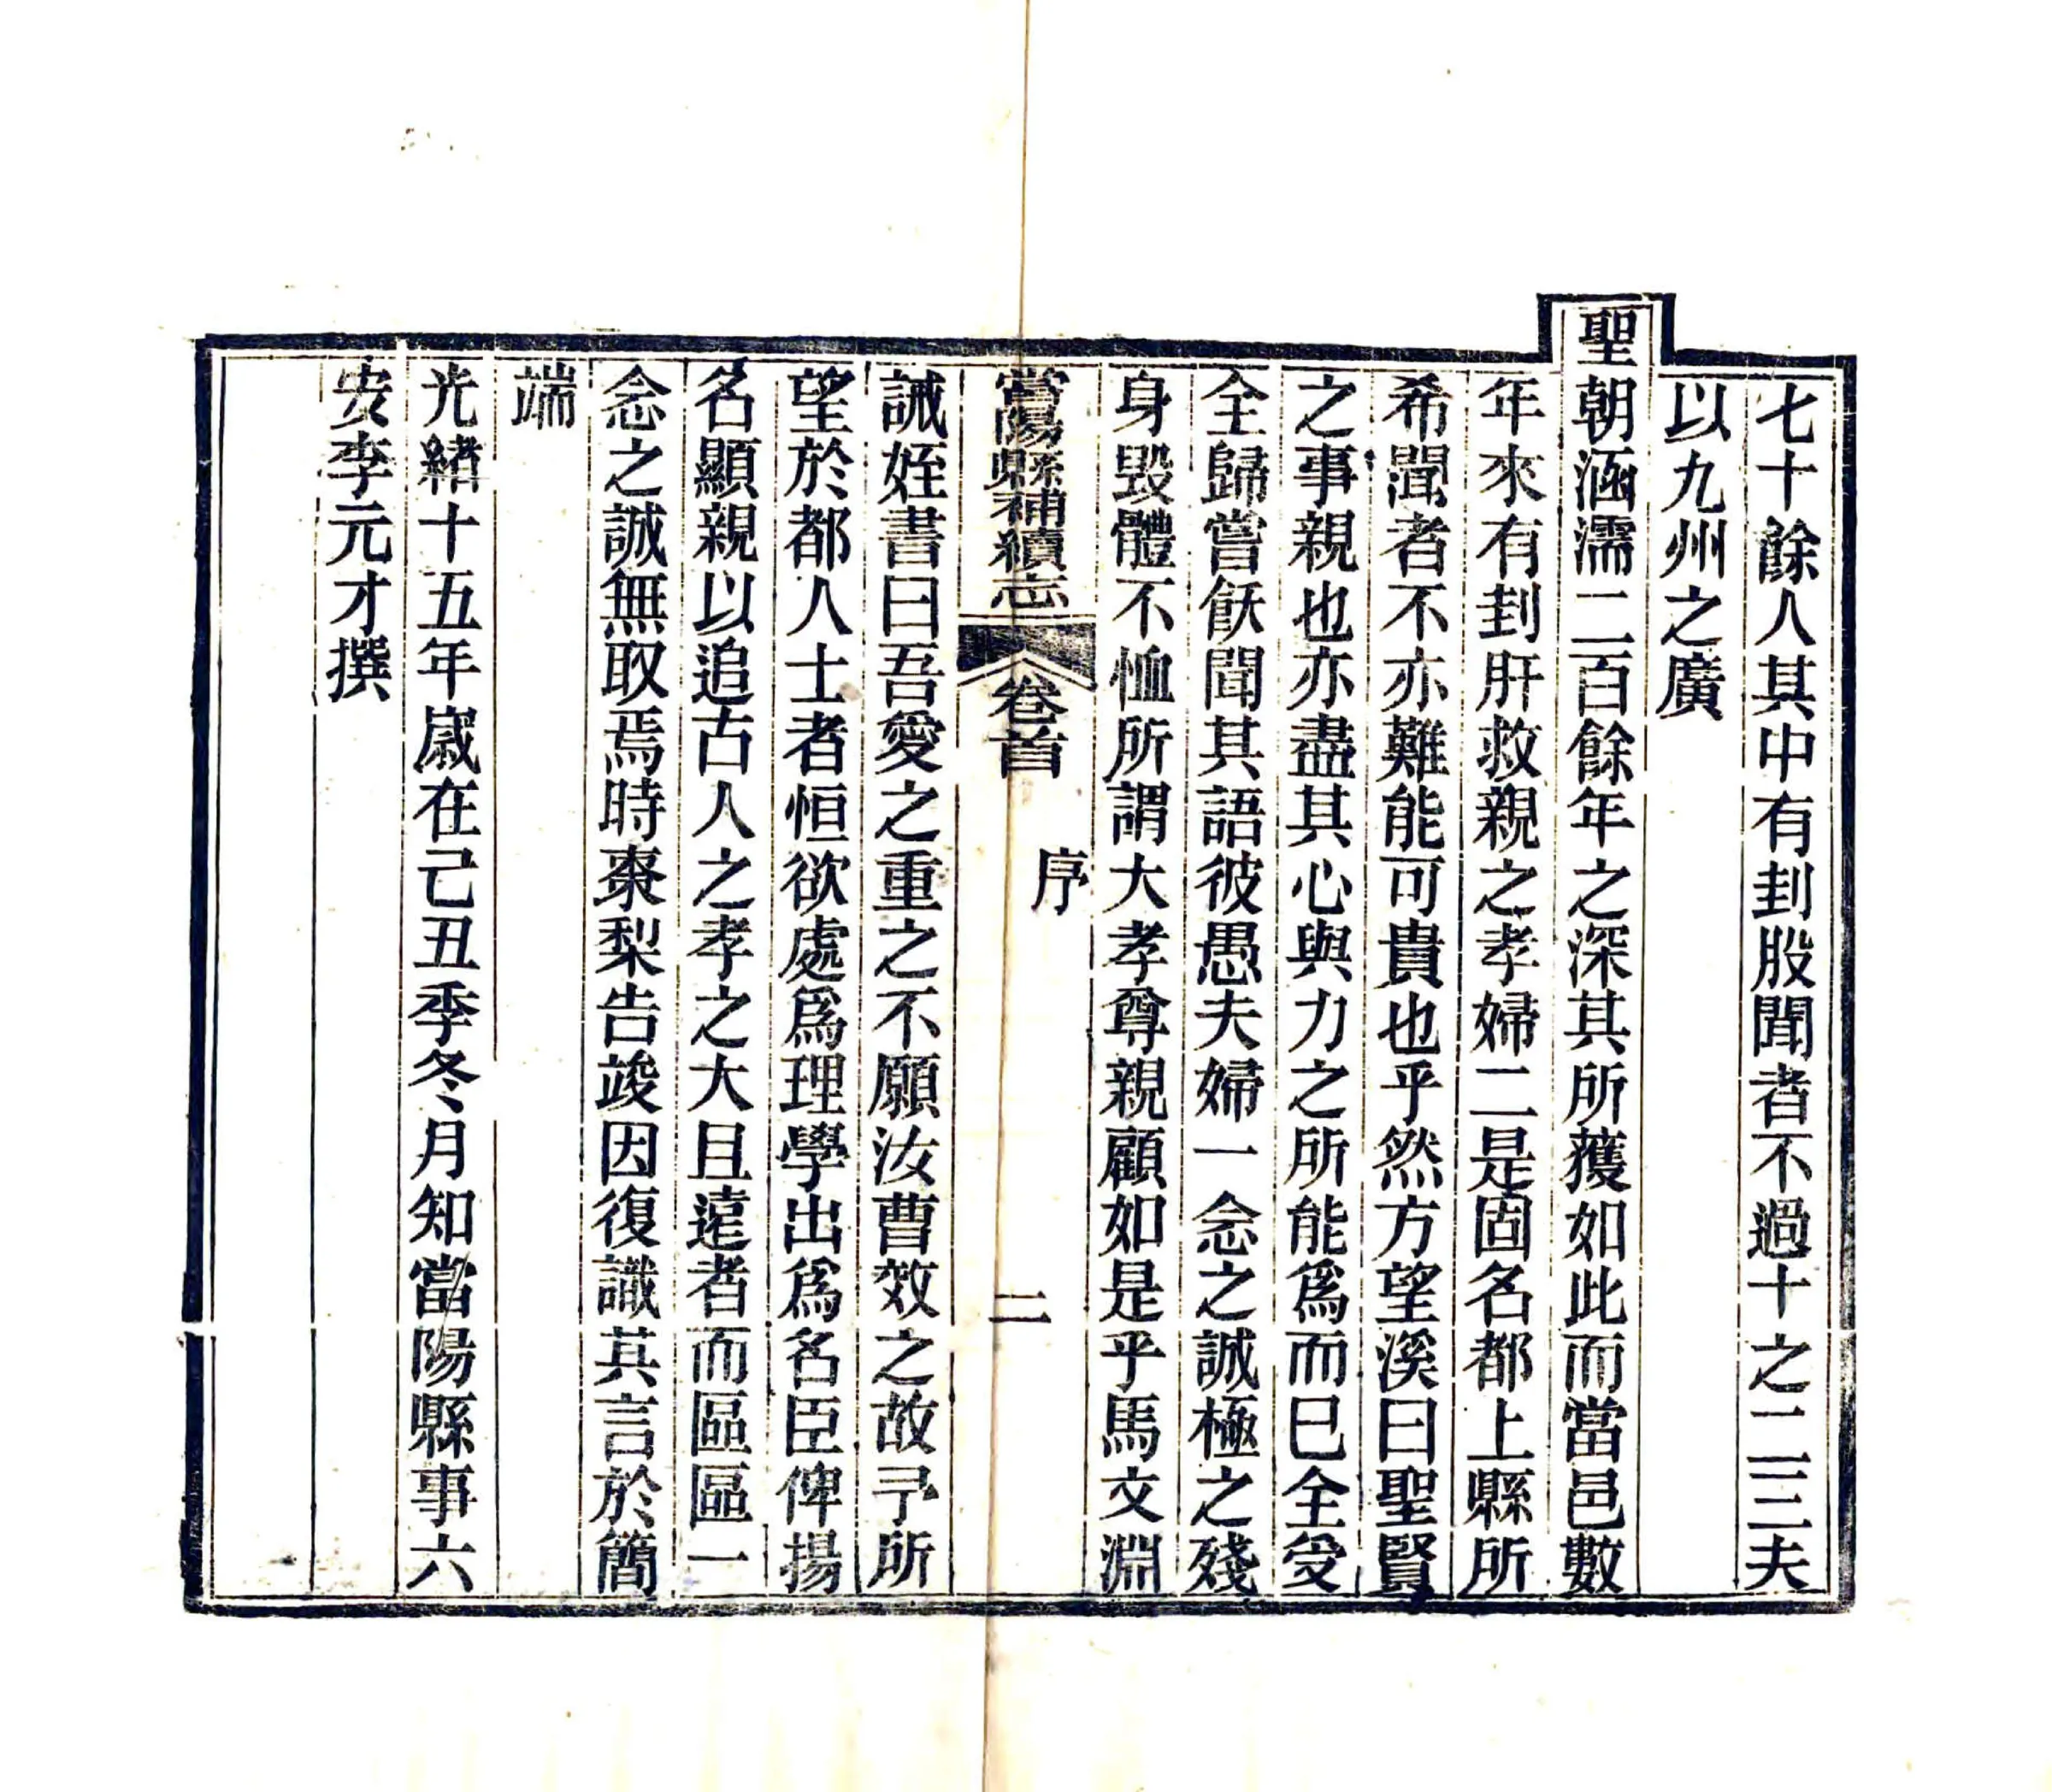 七十餘人其中有刲股聞者不過十之二三夫
以九州之廣
聖朝涵濡二百餘年之深其所獲如此而當邑數
年來有刲肝救親之孝婦二是固名都上縣所
希聞者不亦難能可貴也乎然方望溪曰聖賢
之事親也亦盡其心與力之所能爲而已全受
全歸嘗飫聞其語彼愚夫婦一念之誠極之殘
身毀體不恤所謂大孝尊親顧如是乎馬文淵
當陽縣補續志 卷首 序 二
誡姪書曰吾愛之重之不願汝曹效之故予所
望於都人士者恒欲處爲理學出爲名臣俾揚
名顯親以追古人之孝之大且遠者而區區一
念之誠無取焉時棗梨告竣因復識其言於簡
端
光緒十五年嵗在己丑季冬月知當陽縣事六
安李元才撰